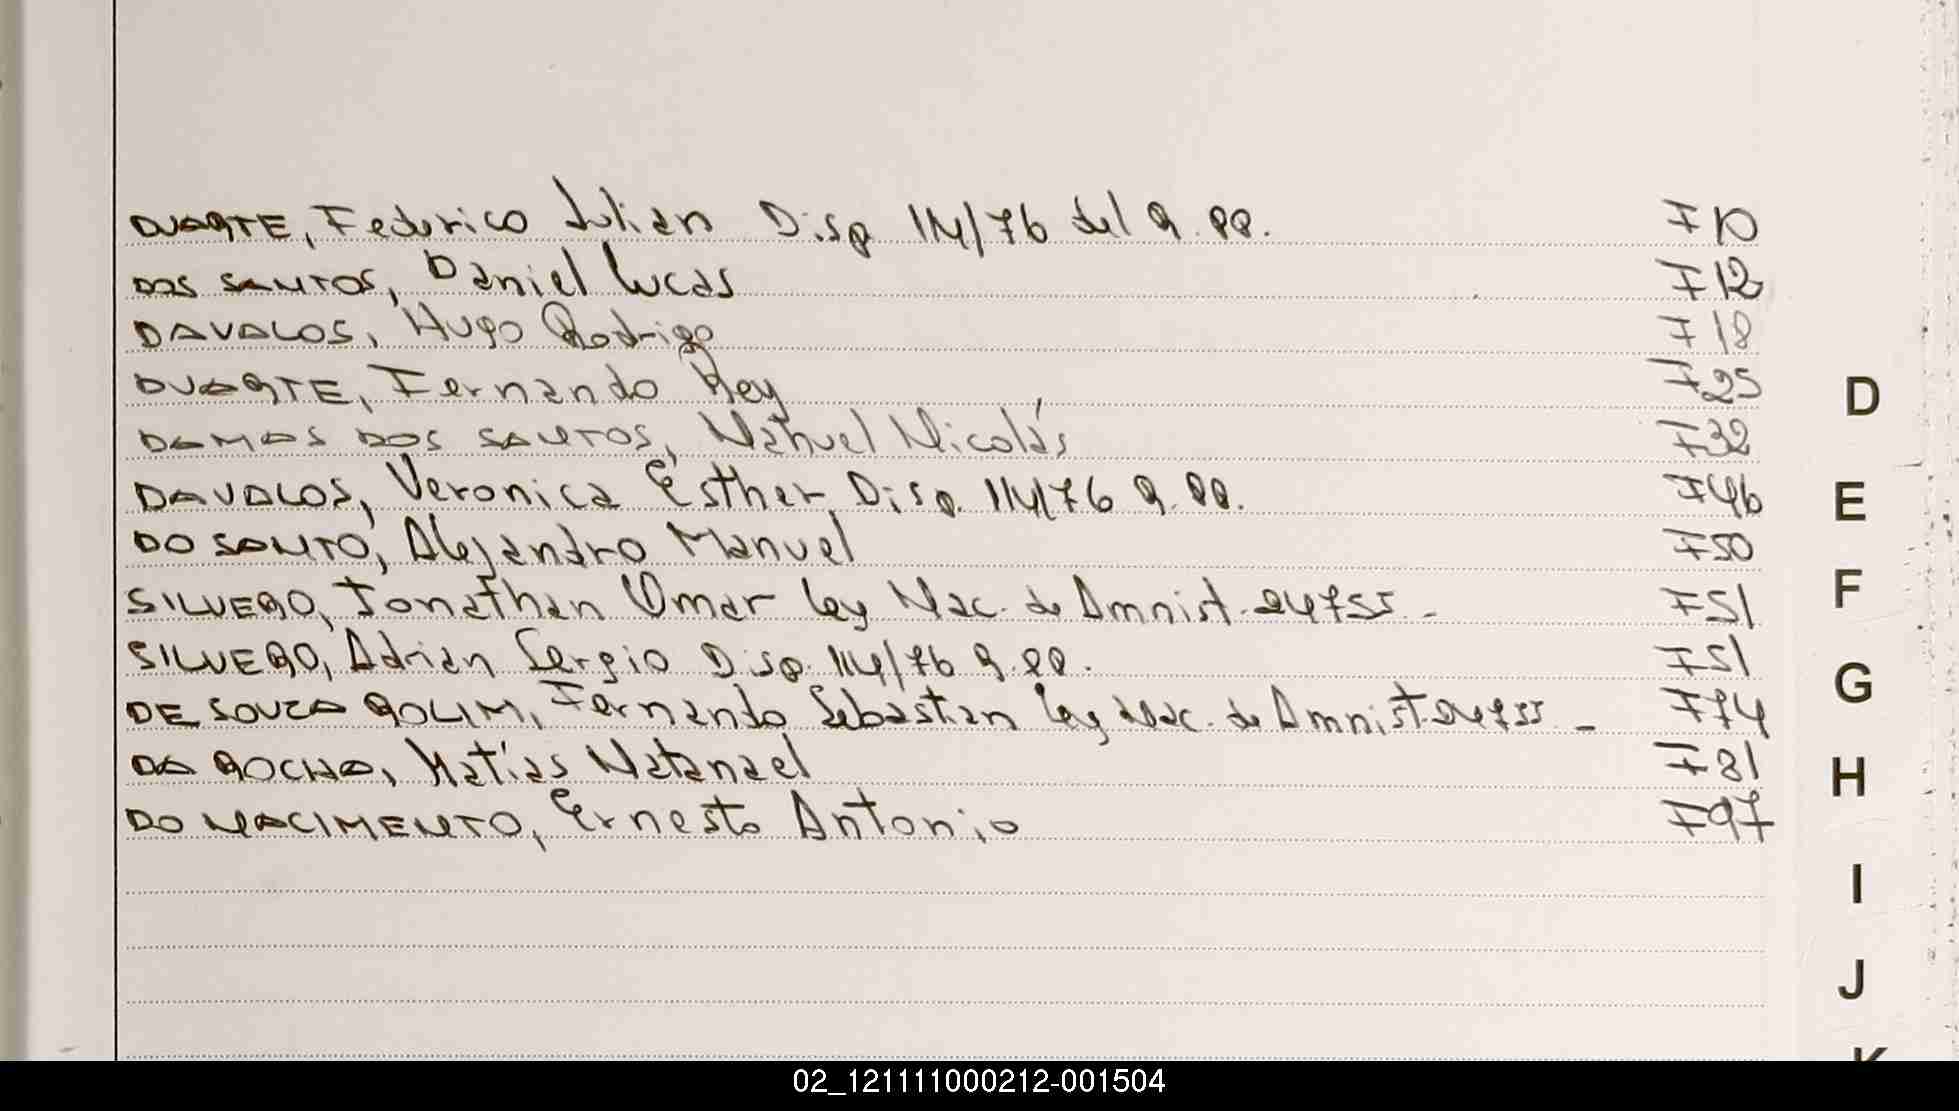 DUARTE, Federico Julian Disp 114/76 del R. PP. F10
DOS SANTOS, Daniel Lucas F12
DAVALOS, Hugo Rodrigo F18
DUARTE, Fernando Rey F25
DAMAS DOS SANTOS, Nahuel Nicolás F32
DAVALOS, Veronica Esther Disp. 114/76 R. PP. F46
DO SANTO, Alejandro Manuel F50
SILVERO, Jonathan Omar Ley Nac. de Amnist. 24755 - F51
SILVERO, Adrian Sergio Disp. 114/76 R. PP. F51
DE SOUZA ROLIM, Fernando Sebastian Ley Nac. de Amnist. 24755 - F74
DA ROCHA, Matías Natanael F81
DO NACIMENTO, Ernesto Antonio F97
D
E
F
G
H
I
J
K
02_121111000212-001504